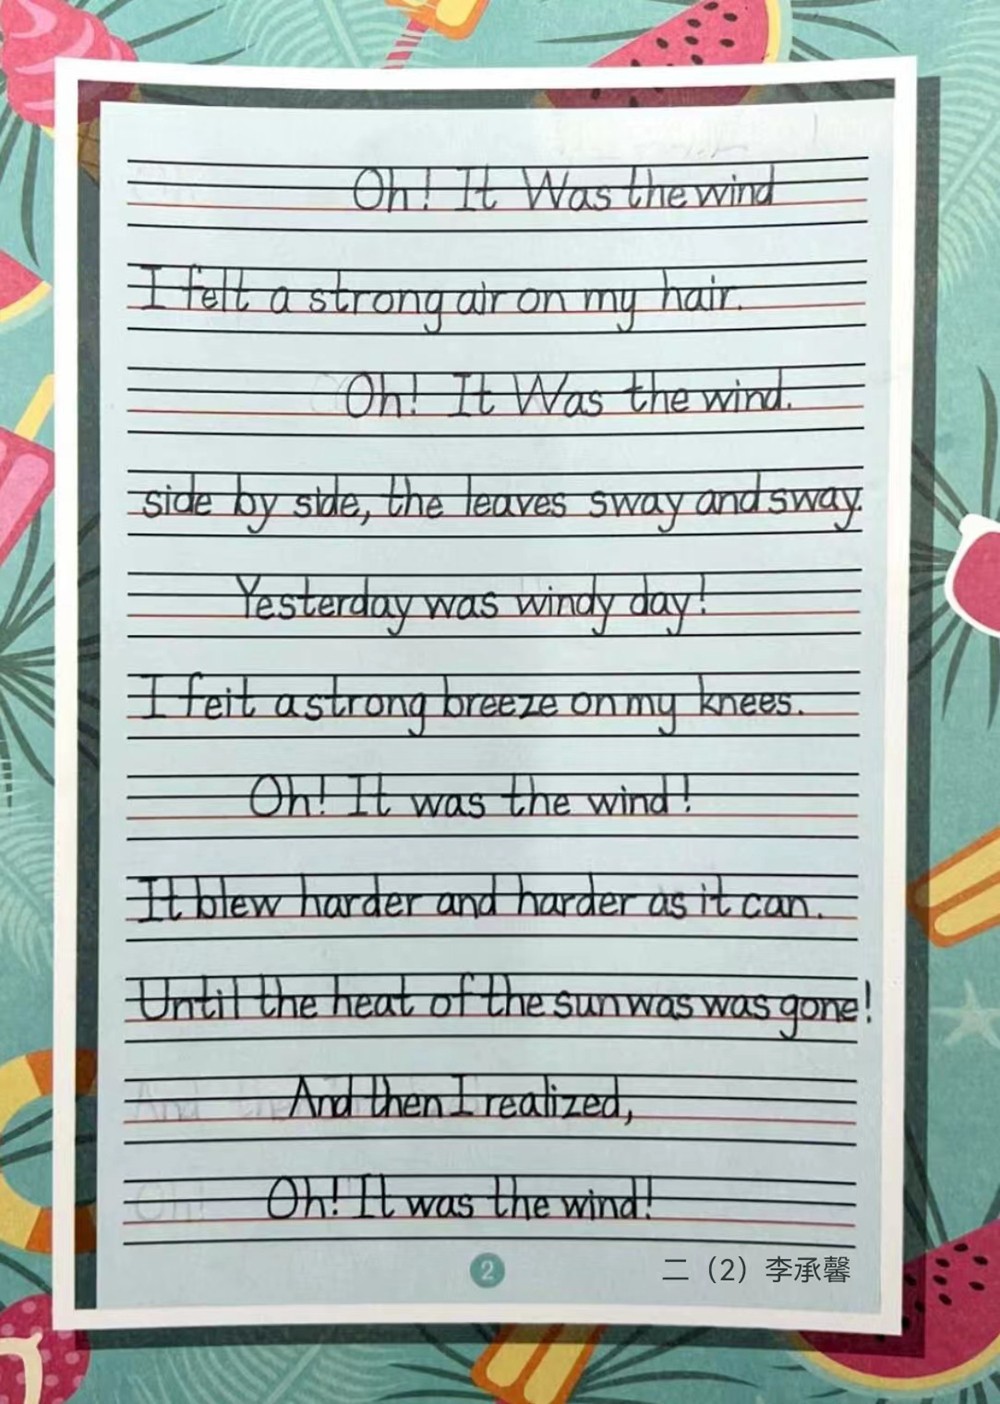 Oh! It Was the wind
I felt a strong air on my hair.
Oh! It Was the wind.
side by side, the leaves sway and sway.
Yesterday was windy day!
I feit a strong breeze on my knees.
Oh! It was the wind!
It blew harder and harder as it can.
Until the heat of the sun was was gone!
And then I realized,
Oh! It was the wind!
2
二（2）李承馨